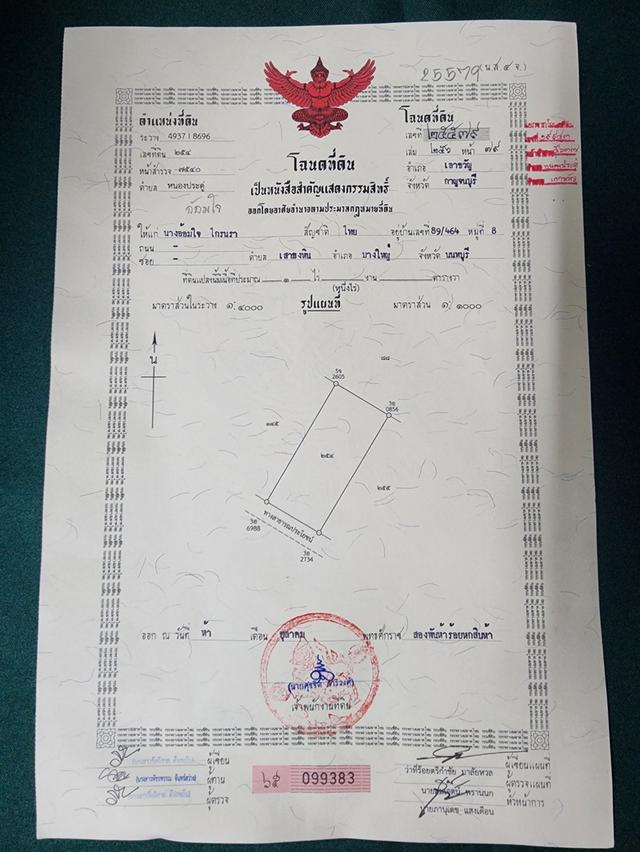 25579 (น.ส.๔ จ.)
ตำแหน่งที่ดิน
ระวาง 4937 I 8696
เลขที่ดิน ๒๕๔
หน้าสำรวจ ๗๕๔๐
ตำบล หนองประดู่
โฉนดที่ดิน
เลขที่ ๒๕๕๗๙
เล่ม ๒๕๖ หน้า ๗๙
อำเภอ เลาขวัญ
จังหวัด กาญจนบุรี
โฉนดที่ดิน
เป็นหนังสือสำคัญแสดงกรรมสิทธิ์
ออกโดยอาศัยอำนาจตามประมวลกฎหมายที่ดิน
ให้แก่ นางอ้อมใจ ไกรนรา สัญชาติ ไทย อยู่บ้านเลขที่ 89/464 หมู่ที่ 8
ถนน -
ซอย - ตำบล เสาธงหิน อำเภอ บางใหญ่ จังหวัด นนทบุรี
ที่ดินแปลงนี้มีเนื้อที่ประมาณ ๑ ไร่ - งาน - ตารางวา
(หนึ่งไร่)
มาตราส่วนในระวาง ๑:๔๐๐๐ รูปแผนที่ มาตราส่วน ๑:๑๐๐๐
น
๘๘
5จ
2605
3ฮ
0856
๑๔๕
๒๕๔
๒๕๕
ทางสาธารณประโยชน์
3ฮ
6988
3ฮ
2734
ออก ณ วันที่ ห้า เดือน ตุลาคม พุทธศักราช สองพันห้าร้อยหกสิบห้า
เจ้าพนักงานที่ดิน
ผู้เขียน
ผู้ทาน
ผู้ตรวจ
๖๕ 099383
ว่าที่ร้อยตรีกำชัย มาลัยหวล ผู้เขียนแผนที่
พรานนก ผู้ตรวจแผนที่
นายภานุเดช แสงเดือน หัวหน้าการ